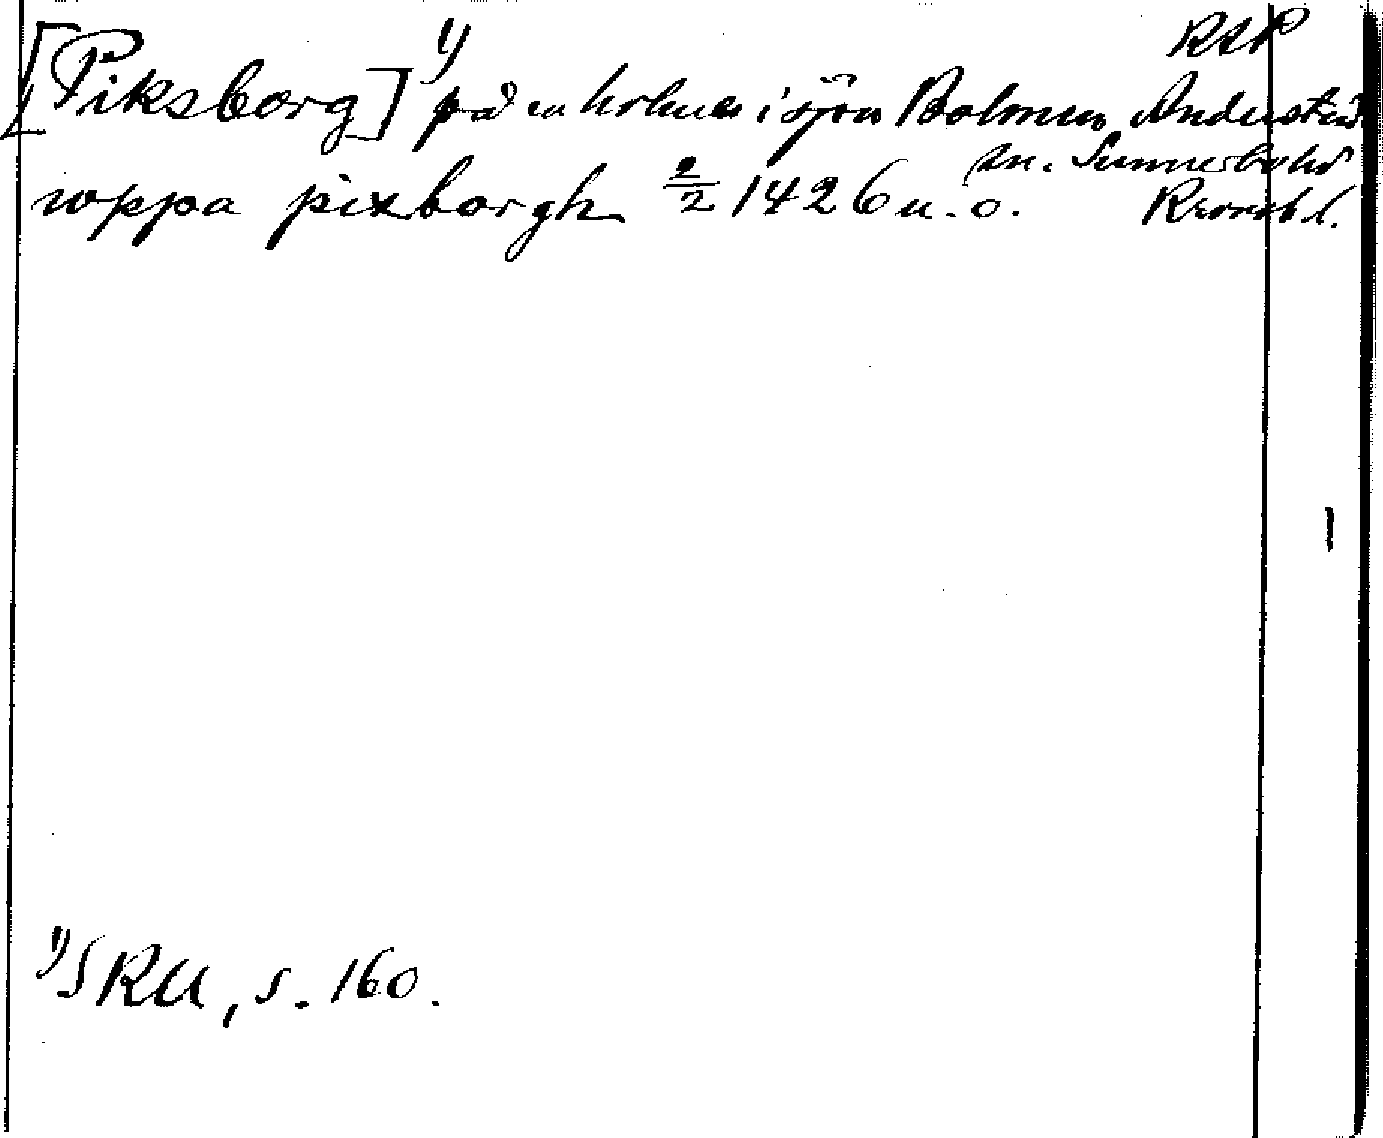 RAP
[Piksborg] 1) på en holme i sjön Bolmen, Anderstad
sn. Sunnerbo hd
woppa pixborgh 2/2 1426 u. o. Kronob l.
1) SRU, s. 160.